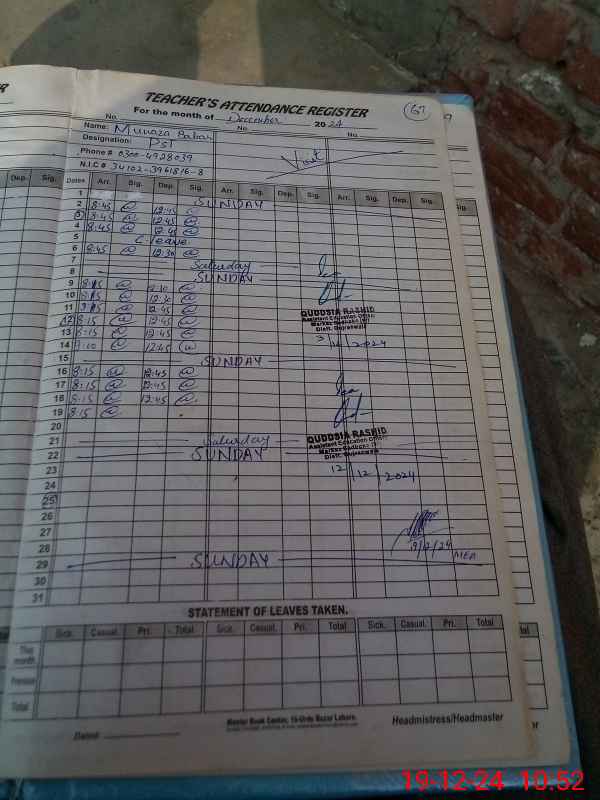 TEACHER'S ATTENDANCE REGISTER
67
For the month of December 2024
No. No. No.
Name: Munaza Babar
Designation: PST
Phone # 0300-4928039
N.I.C # 34102-3961816-8
Visit
Dep. Sig. Dates Arr. Sig. Dep. Sig. Arr. Sig. Dep. Sig. Arr. Sig. Dep. Sig.
1 SUNDAY
2 8:45 @ 12:45 @
3 8:45 @ 12:45 @
4 8:45 @ 12:45 @
5 C leave
6 8:45 @ 12:30 @
7 Saturday
8 SUNDAY
9 8:15 @ 12:30 @
10 8:15 @ 12:30 @
11 8:15 @ 12:45 @
12 8:15 @ 12:45 @
13 8:15 @ 12:45 @
14 @ 12:45 @
15 SUNDAY
16 8:15 @ 12:45 @
17 8:15 @ 12:45 @
18 8:15 @ 12:45 @
19 8:15 @
20
21 Saturday
22 SUNDAY
23
24
25
26
27
28
29 SUNDAY
30
31
QUDDSIA RASHID
Assistant Education Officer
Distt. Gujranwala
2024
QUDDSIA RASHID
Assistant Education Officer
Distt. Gujranwala
12/12/2024
MEA
STATEMENT OF LEAVES TAKEN.
Sick. Casual. Pri. Total Sick. Casual. Pri. Total Sick. Casual. Pri. Total
This month
Previous
Total
Dated
Master Book Center, 16-Urdu Bazar Lahore.
Headmistress/Headmaster
19-12-24 10:52